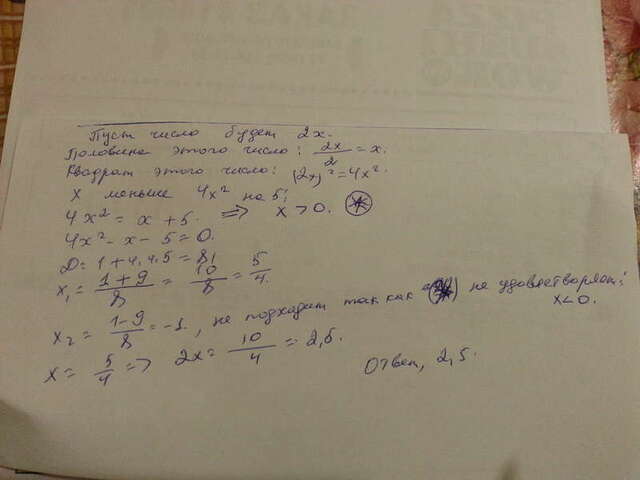 Пуст число будет 2x.
Половина этого число: 2x/2 = x.
Квадрат этого число: (2x)² = 4x².
x меньше 4x² на 5;
4x² = x + 5. => x > 0. (*)
4x² - x - 5 = 0.
D = 1 + 4.4.5 = 81
x₁ = (1+9)/8 = 10/8 = 5/4.
x₂ = (1-9)/8 = -1, не подходит так как (*) не удовлетворяет;
x<0.
x = 5/4 => 2x = 10/4 = 2,5.
Ответ, 2,5.